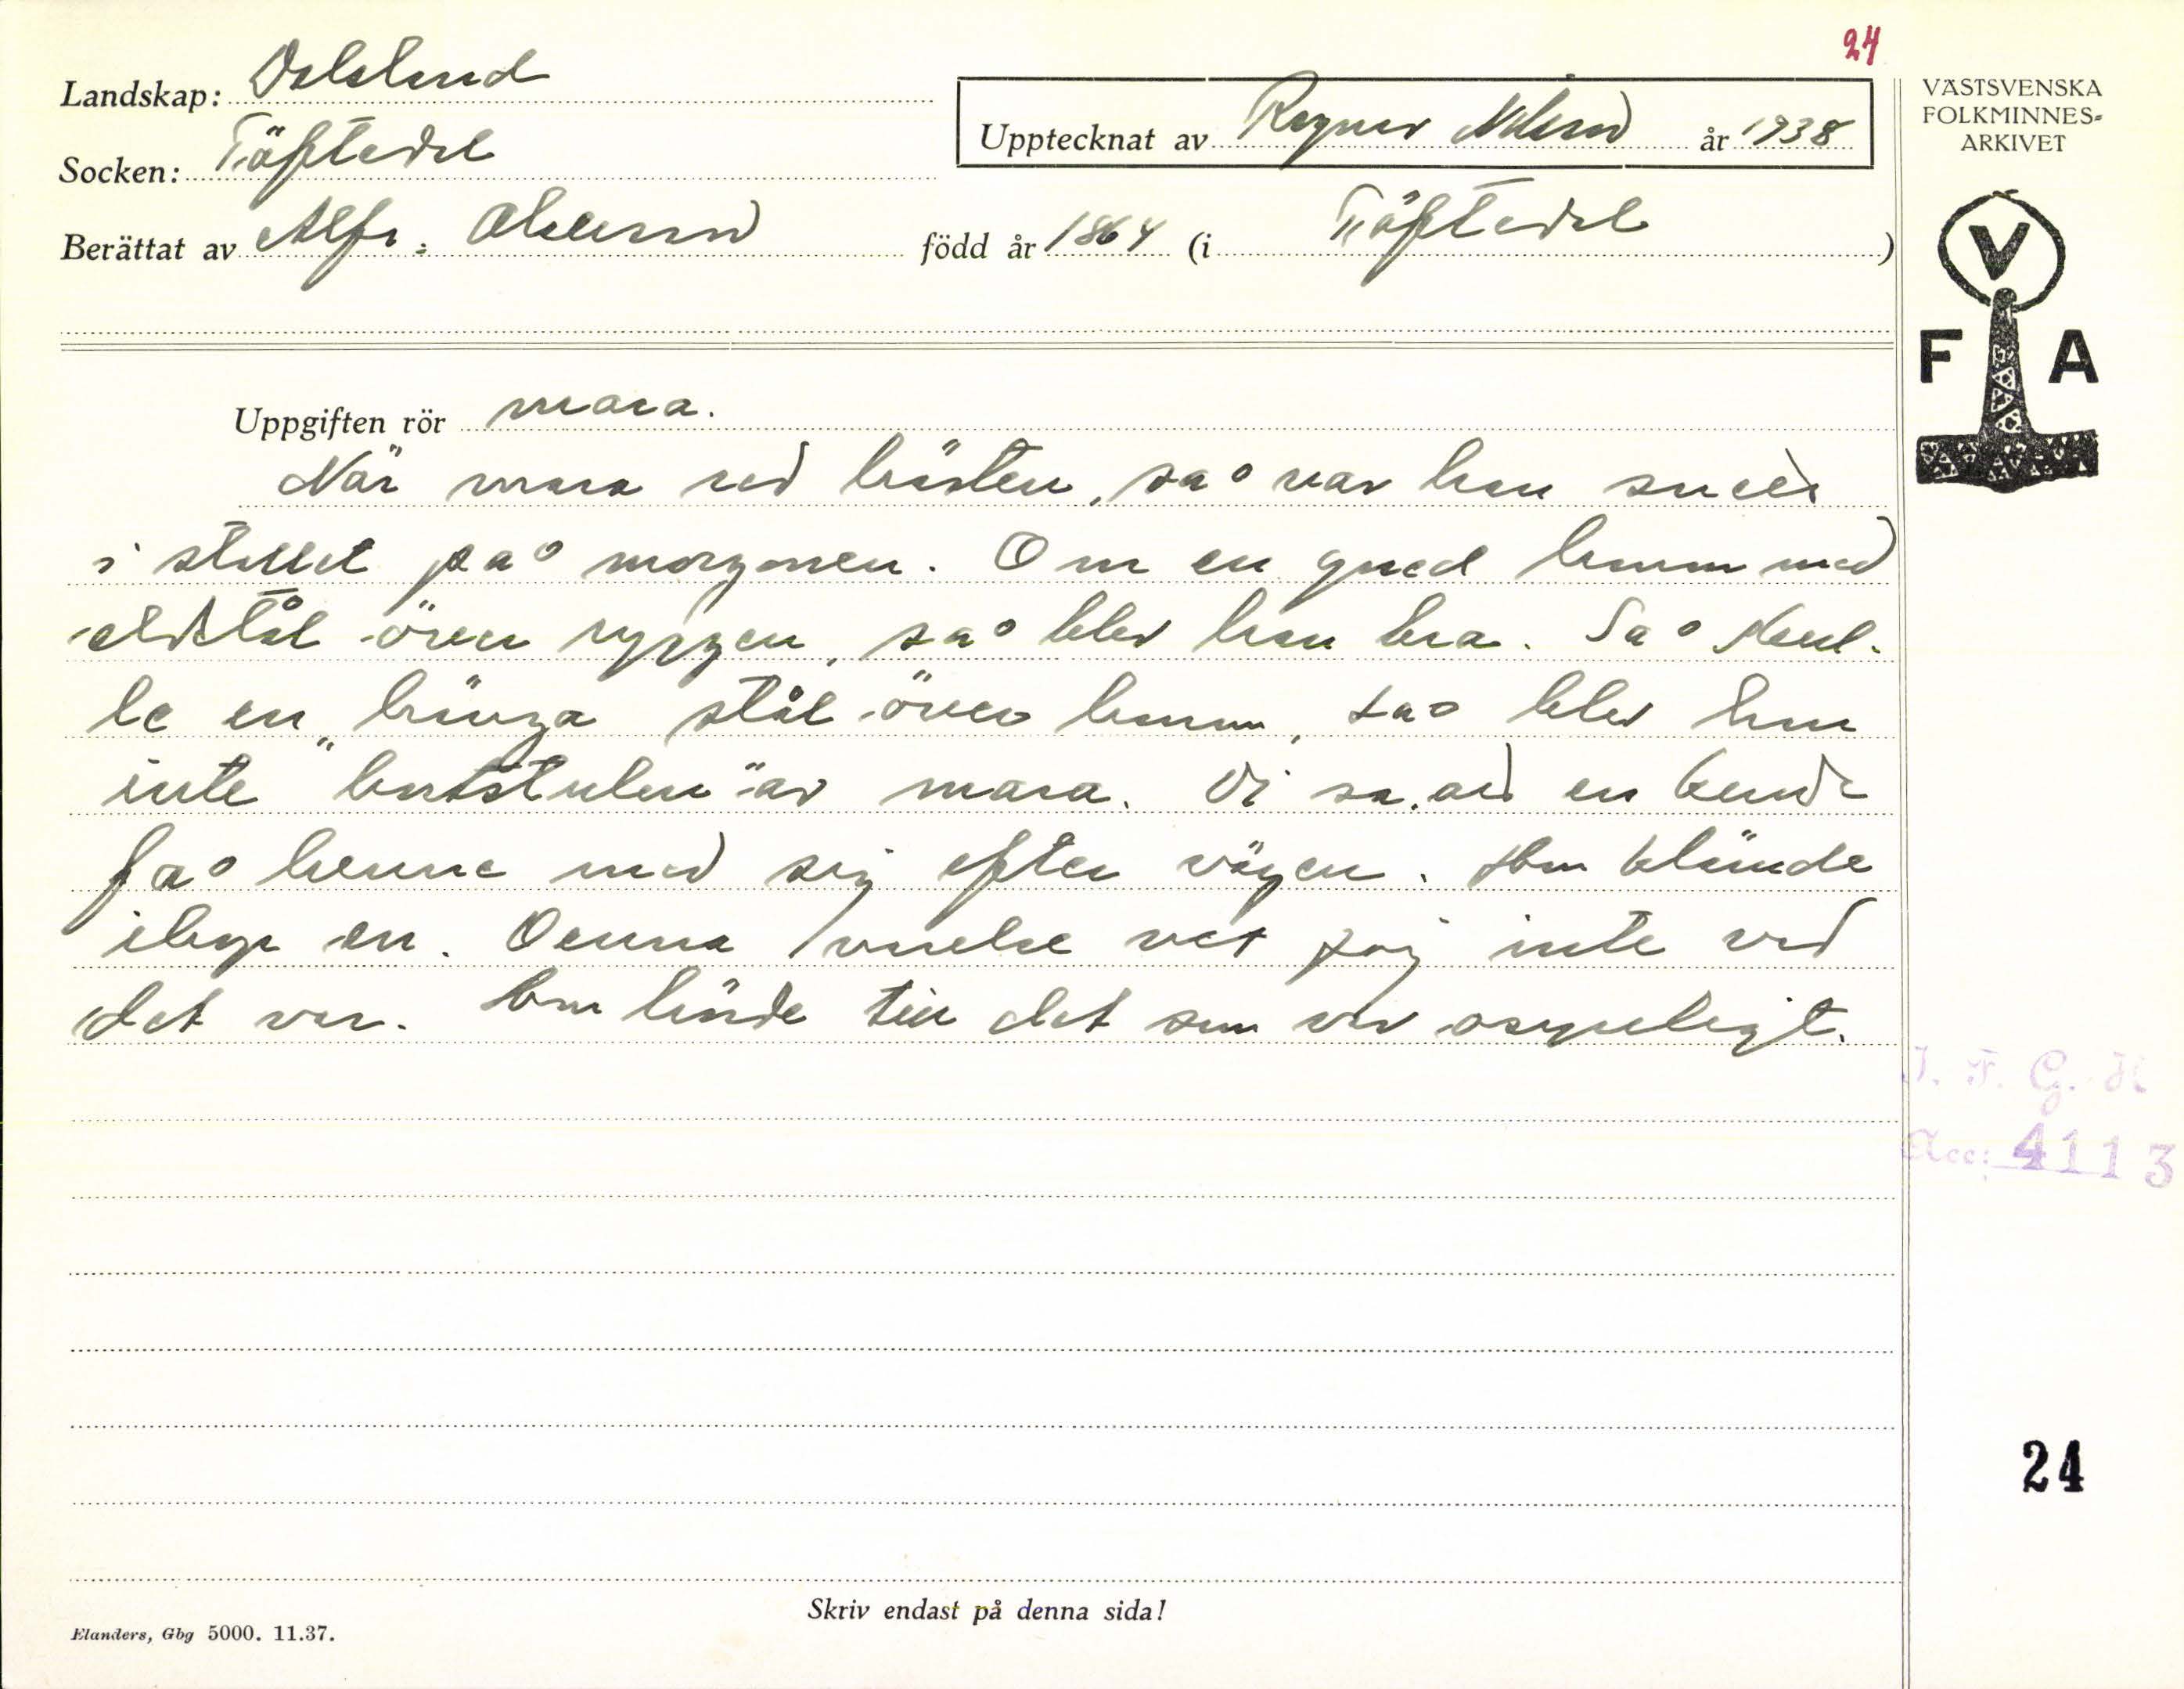 24
Landskap: Dalsland
Socken: Töftedal
Upptecknat av Ragnar Nilsson år 1938
Berättat av Alfr. Olsson född år 1864 (i Töftedal)
VÄSTSVENSKA
FOLKMINNES=
ARKIVET
V
F A
Uppgiften rör mara.
När mara red hästen, så var han
i stallet på morgonen. Om en gned honom med
eldstål över ryggen, så blev han bra. Så skul-
le en hänga stål över honom, så blev han
inte av mara. Di sa, att en kunde
få henne med sig efter vägen. Hon klämde
ihop en. Denna varelse vet jag inte vad
det var. Hon hörde till det som var osynligt.
I. F. G. H
Acc: 4113
24
Skriv endast på denna sida!
Elanders, Gbg 5000. 11.37.